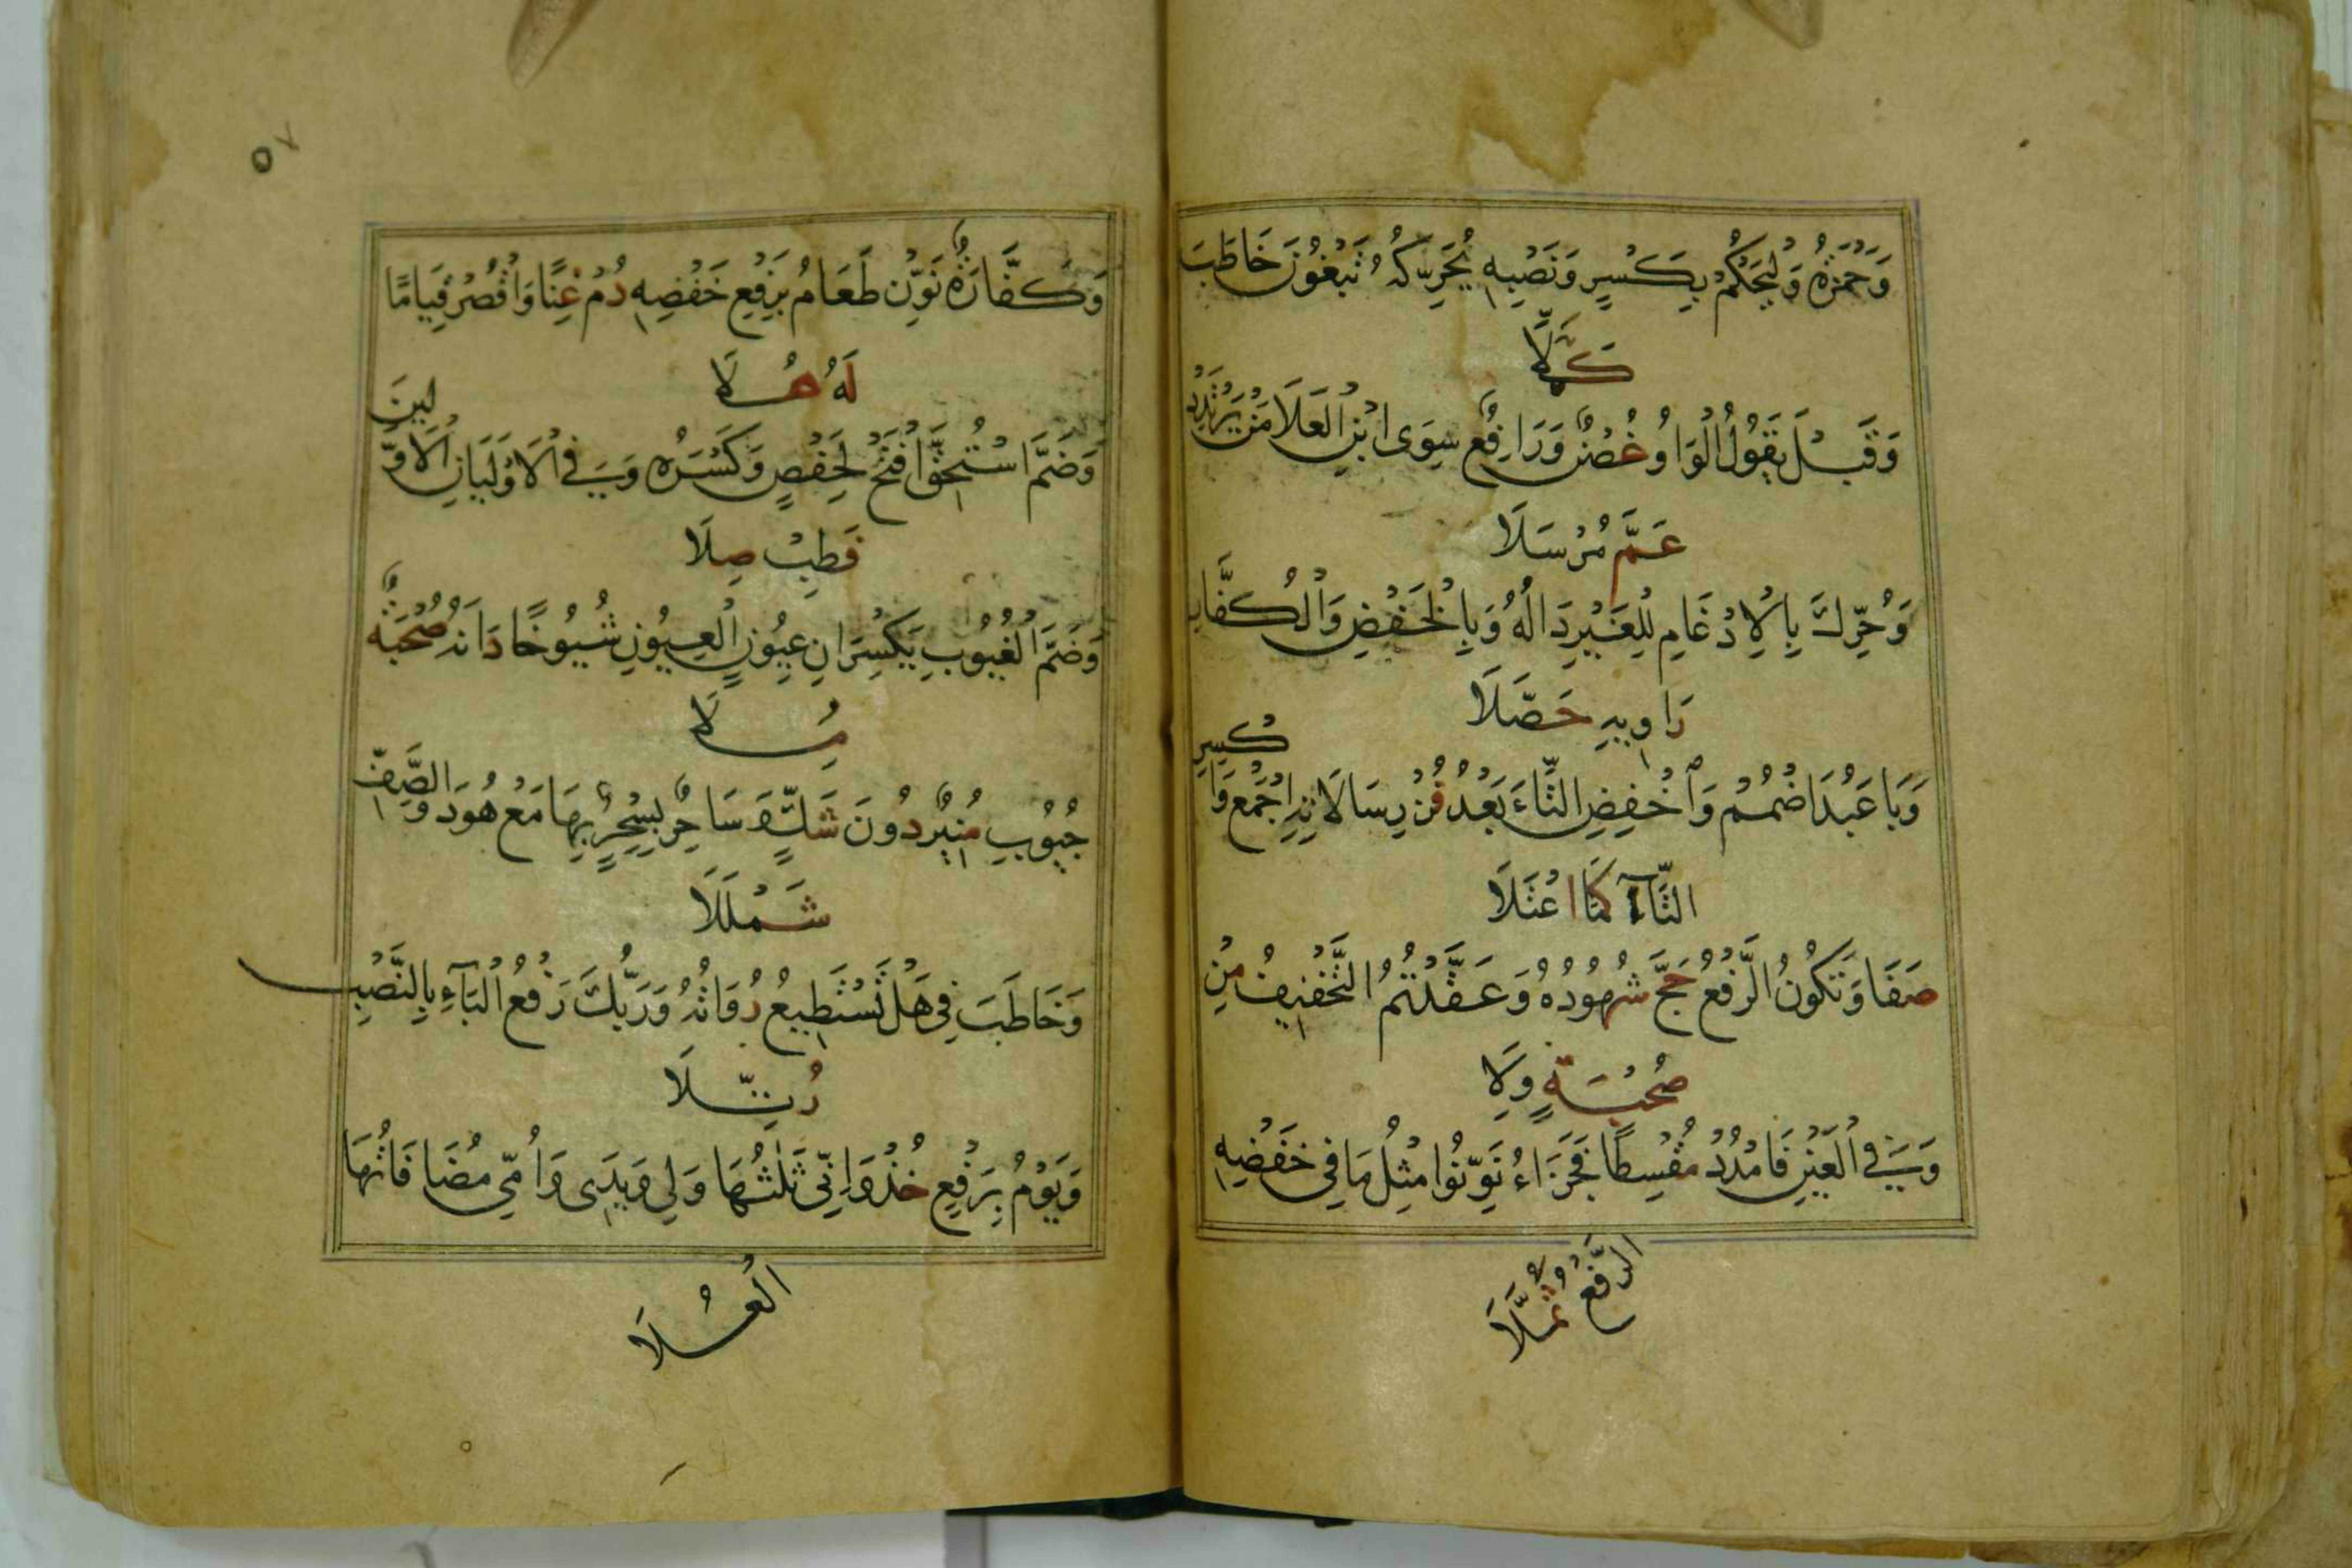 وَحَمْزَةُ وَلْيَحْكُمْ بِكَسْرٍ وَنَصْبِهِ يُحَرِّكُهُ تَبْغُونَ خَاطَبَ
كُمَّلَا
وَقَبْلَ يَقُولُ الْوَاوُ غُصْنٌ وَرَافِعٌ سِوَى ابْنِ الْعَلَا مَنْ يَرْتَدِدْ
عَمَّ مُرْسَلَا
وَحُرِّكَ بِالْإِدْغَامِ لِلْغَيْرِ دَالُهُ وَبِالْخَفْضِ وَالْكُفَّارِ
رَاوِيهِ حَصَّلَا
وَبَا عَبُدَ اضْمُمْ وَاخْفِضِ التَّاءَ بَعْدُ فُزْ رِسَالَاتِهِ اجْمَعْ وَا
كْسِرِ
التَّاءَ كَمَا اعْتَلَا
صَفَا وَتَكُونُ الرَّفْعُ حَجَّ شُهُودُهُ وَعَقَّدْتُمُ التَّخْفِيفُ مِنْ
صُحْبَةٍ وِلَا
وَفِي الْعَيْنِ فَامْدُدْ مُقْسِطًا فَجَزَاءُ نَوِّنُوا مِثْلُ مَا فِي خَفْضِهِ
الرَّفْعُ ثُمَّلَا
٥٧
وَكَفَّارَةٌ نَوِّنْ طَعَامُ بِرَفْعِ خَفْضِهِ دُمْ غِنًا وَاقْصُرْ قِيَامًا
لَهُ مُلَا
وَضَمَّ اسْتُحِقَّ افْتَحْ لِحَفْصٍ وَكَسْرُهُ وَفِي الْأَوْلَيَانِ الْأَوَّ
لِينَ
فَطِبْ صِلَا
وَضَمَّ الْغُيُوبِ يَكْسِرَانِ عُيُونٍ الْعُيُونِ شُيُوخًا دَانَهُ صُحْبَةٌ
مِلَا
جُيُوبِ مُنِيرٌ دُونَ شَكٍّ وَسَاحِرٌ بِسِحْرٌ بِهَا مَعْ هُودَ وَالصَّفِّ
شَمْلَلَا
وَخَاطَبَ فِي هَلْ تَسْتَطِيعُ رُوَاتُهُ وَرَبُّكَ رَفْعُ الْبَاءِ بِالنَّصْبِ
رُتِّلَا
وَيَوْمُ بِرَفْعٍ خُذْ وَإِنِّي ثَلَاثُهَا وَلِي وَيَدِي وَأُمِّي مُضَافَاتُهَا
الْعُلَا